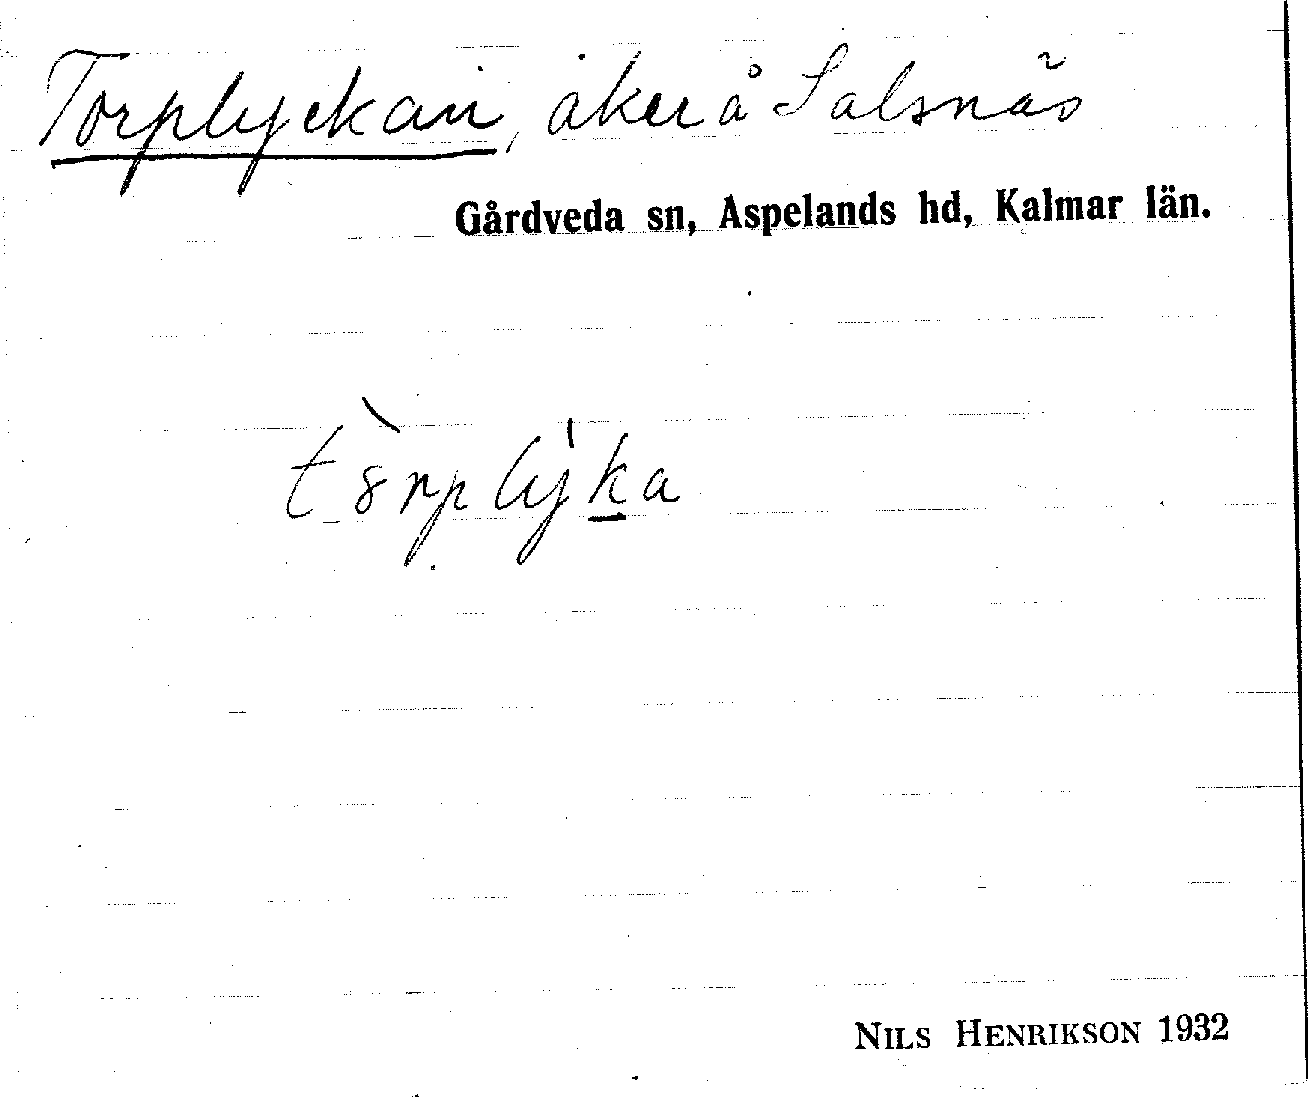 Torplyckan, åker å Salsnäs
Gårdveda sn, Aspelands hd, Kalmar län.
t8̀rply̍ka
NILS HENRIKSON 1932